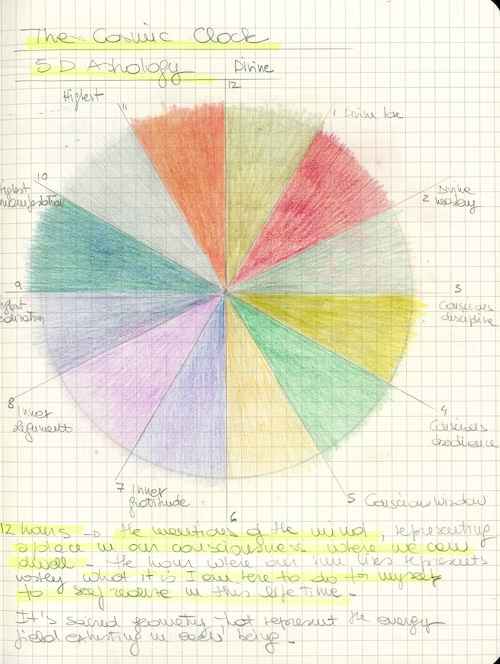 The Cosmic Clock
5 D Astrology
Divine
12
Highest
11
1 Divine love
10
Highest
2
Divine
9
3
Conscious
discipline
8
Inner
4
Conscious
obedience
7 Inner
gratitude
6
5 Conscious Wisdom
12 hours → the mentions of the mind, representing
a place in our consciousness where we can
dwell - The hour where our sun lies represents
what it is I am here to do for myself
to self realize in this life time -
It's sacred geometry that represent the energy
field existing in each being -